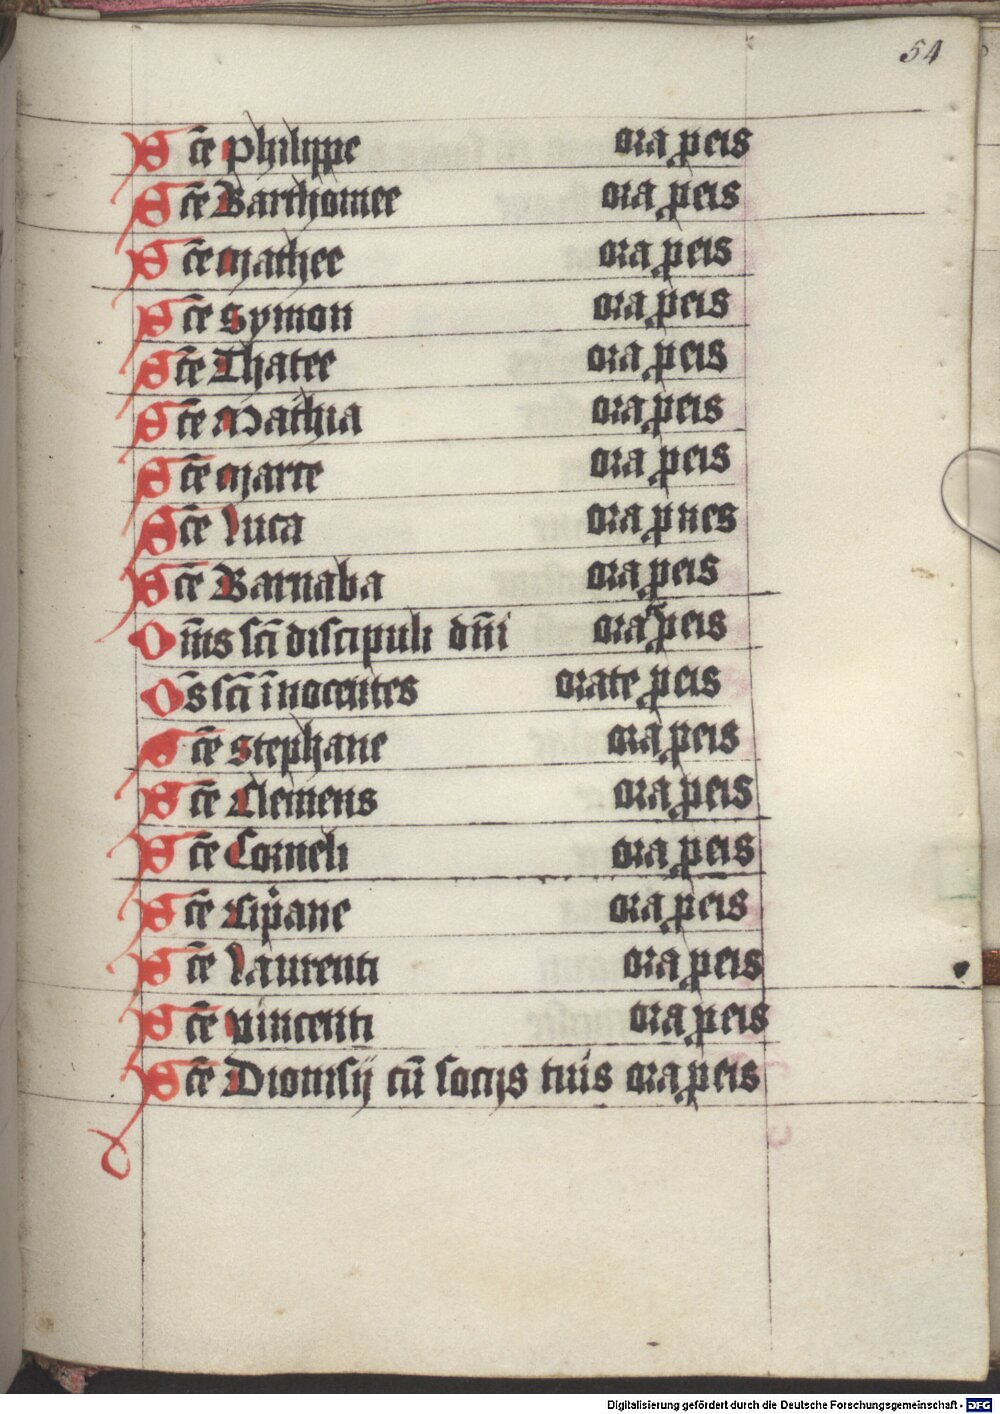 54
Sc̄e philippe ora ꝓ eis
Sc̄e Bartholmee ora ꝓ eis
Sc̄e mathee ora ꝓ eis
Sc̄e Symon ora ꝓ eis
Sc̄e Thatee ora ꝓ eis
Sc̄e Mathia ora ꝓ eis
Sc̄e marce ora ꝓ eis
Sc̄e luca ora ꝓ
Sc̄e Barnaba ora ꝓ eis
Om̄s sc̄i discipuli dn̄i ora ꝓ eis
Os sc̄i īnocentes orate ꝓ eis
Sc̄e Stephane ora ꝓ eis
Sc̄e Clemens ora ꝓ eis
Sc̄e Corneli ora ꝓ eis
Sc̄e Cip̄ane ora ꝓ eis
Sc̄e laurenti ora ꝓ eis
Sc̄e vincenti ora ꝓ eis
Sc̄e Dionisij cū socijs tuis ora ꝓ eis
Digitalisierung gefördert durch die Deutsche Forschungsgemeinschaft - DFG